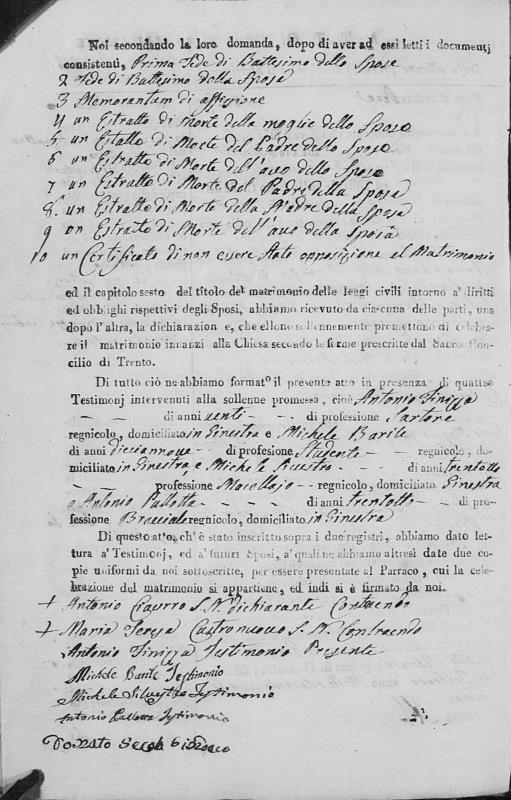 Noi secondando la loro domanda, dopo di aver ad essi letti i documentj
consistenti, Prima Fede di Battesimo dello Sposo
2 Fede di Battesimo della Sposa
3 Memorantam di affigione
4 un Estratto di Morte della moglie dello Sposo
5 un Estatto di Morte del Padre dello Sposo
6 un Estratto di Morte dell'avo dello Sposo
7 un Estratto di Morte del Padre della Sposa
8. un Estratto di Morte della Madre della Sposa
9 un Estratto di Morte dell'avo della Sposa
10 un Certificato di non essere stato opposizione al Matrimonio
ed il capitolo sesto del titolo del matrimonio delle leggi civili intorno a' diritti
ed obblighi rispettivi degli Sposi, abbiamo ricevuto da ciascuna delle parti, una
dopo l'altra, la dichiarazione, che elleno sollennemente promettono di celebra-
re il matrimonio innanzi alla Chiesa secondo le forme prescritte dal Sacro Con-
cilio di Trento.
Di tutto ciò ne abbiamo formato il presente atto in presenza di quattro
Testimonj intervenuti alla sollenne promessa, cioè Antonio
di anni venti di professione Sartore
regnicolo, domiciliato in Ginestra e Michele Barile
di anni diciannove di profesione Studente regnicolo, do-
miciliato in Ginestra, e Michele di anni trentotto
professione Macellajo regnicolo, domiciliato Ginestra
e Antonio Pallotta di anni trentotto di pro-
fessione Bracciale regnicolo, domiciliato in Ginestra
Di questo atto, ch'è stato inscritto sopra i due registri, abbiamo dato let-
tura a' Testimonj, ed a' futuri Sposi, a' quali ne abbiamo altresi date due co-
pie uniformi da noi sottoscritte, per essere presentate al Parraco, cui la cele-
brazione del matrimonio si appartiene, ed indi si è firmato da noi.
+ Antonio dichiarante Contraendo
+ Maria Teresa Castronuovo S. N. Contraendo
Antonio Testimonio Presente
Michele Barile Testimonio
Michele Silvestro Testimonio
Antonio Pallotta Testimonio
Donato Sindaco